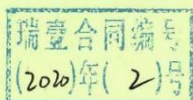 瑞壹合同编号
(2020)年(2)号